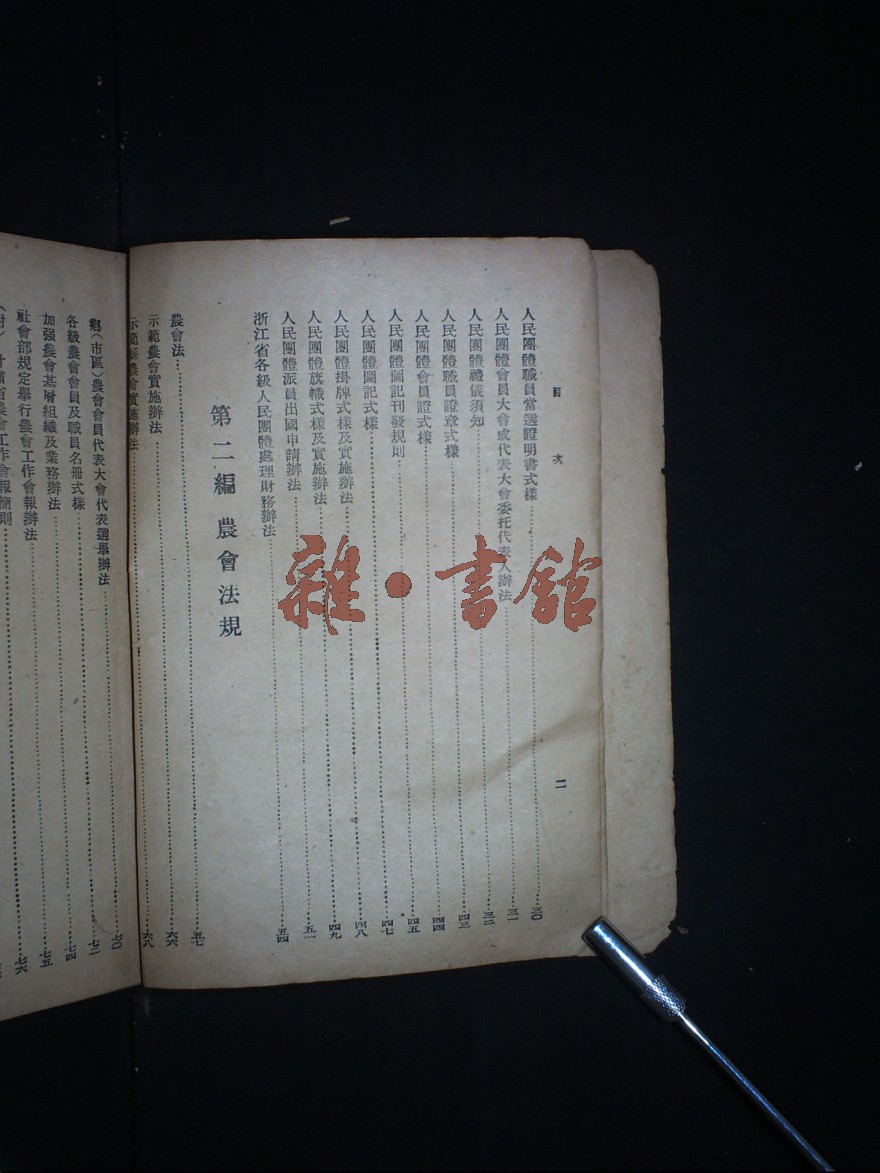 目次 二
人民團體職員當選證明書式樣……三〇
人民團體會員大會或代表大會委托代表人辦法……三一
人民團體禮儀須知……三二
人民團體職員證章式樣……四三
人民團體會員證式樣……四四
人民團體圖記刊發規則……四五
人民團體圖記式樣……四七
人民團體掛牌式樣及實施辦法……四八
人民團體旗幟式樣及實施辦法……四九
人民團體派員出國申請辦法……五一
浙江省各級人民團體處理財務辦法……五四
第二編 農會法規
農會法……五七
示範農會實施辦法……六六
示範縣農會實施辦法……六八
鄉(市區)農會會員代表大會代表選舉辦法……七〇
各級農會會員及職員名册式樣……七二
加强農會基層組織及業務辦法……七四
社會部規定舉行農會工作會報辦法……七五
省農會工作會報簡則……七六
雜·書館